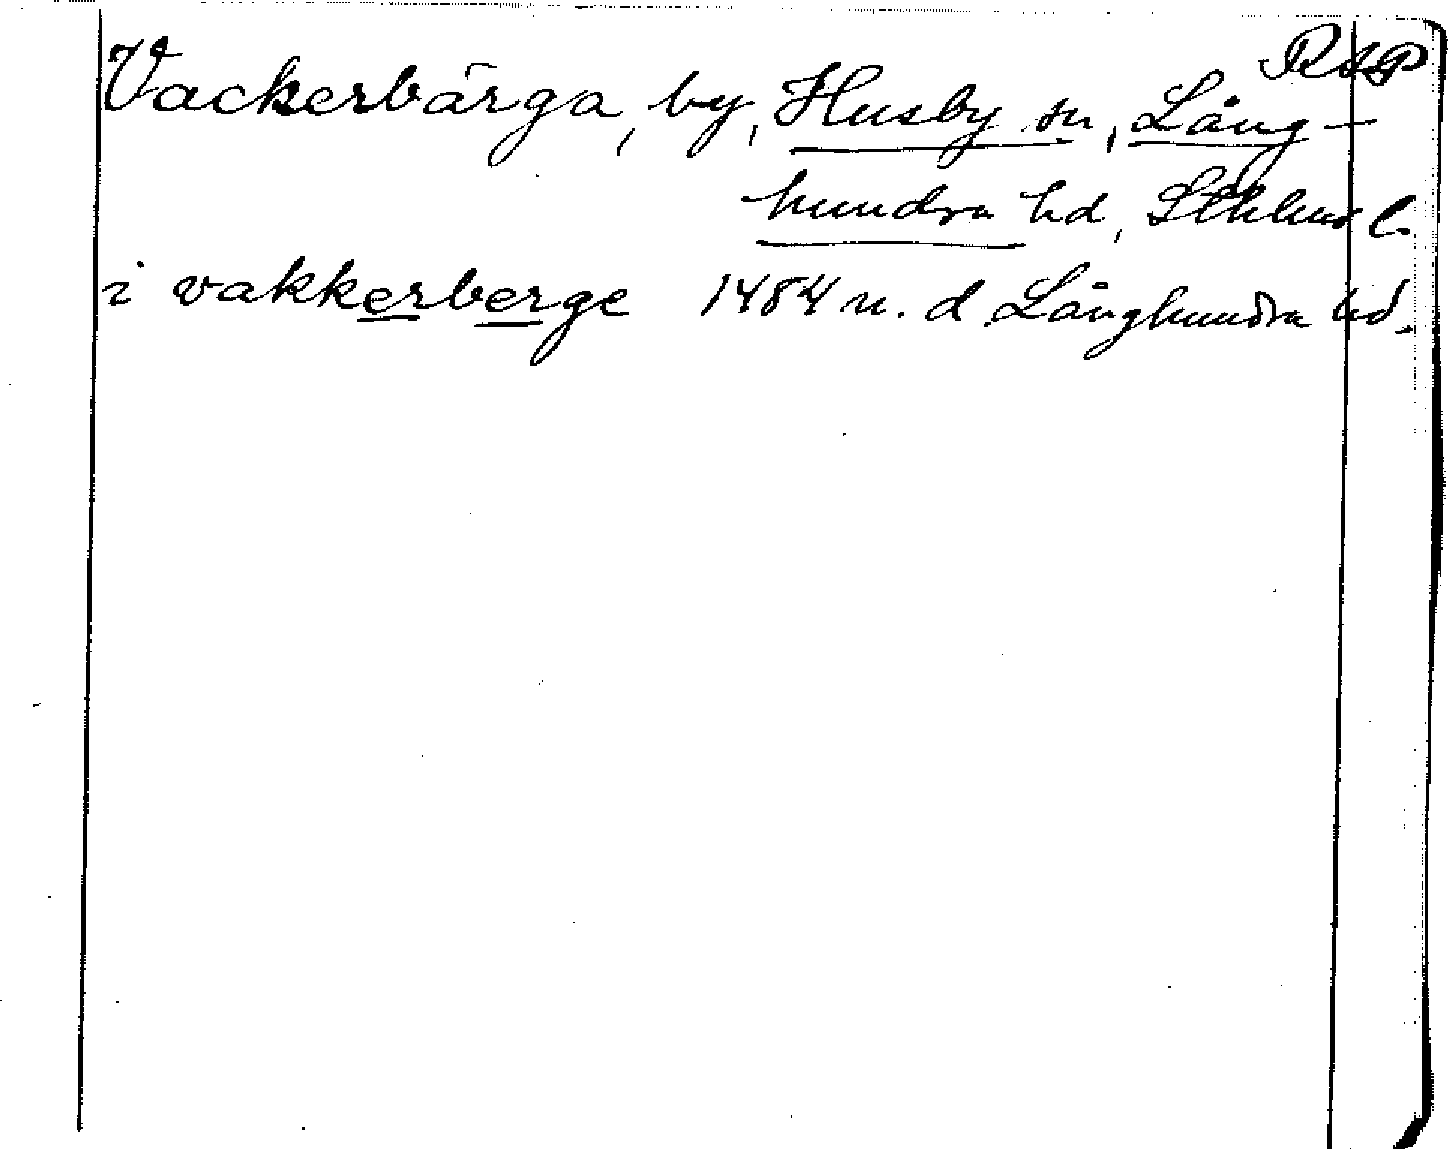 RAP
Vackerbärga, by, Husby sn, Lång-
hundra hd, Sthlms l.
i vakkerberge 1484 n. d Långhundra hd.